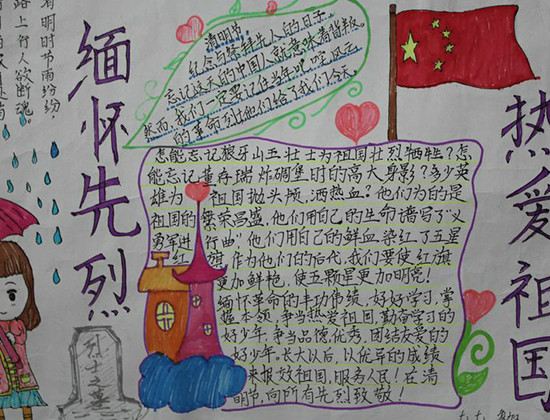 清明时节雨纷纷,
路上行人欲断魂
缅怀先烈
清明节
纪念与祭拜先人的日子
忘记这天的中国人就意味着背叛。
然而,我们一定要记住当年
的革命烈士他们给了我们今天
怎能忘记狼牙山五壮士为祖国壮烈牺牲?怎
能忘记董存瑞炸碉堡时的高大身影?多少英
雄为祖国抛头颅,洒热血?他们为的是
祖国的繁荣昌盛,他们用自己的生命谱写了"义
勇军进行曲",他们用自己的鲜血染红了五星
红旗,作为他们的后代,我们要使红旗
更加鲜艳,使五颗星更加明亮!
缅怀革命的丰功伟绩,好好学习,掌
握本领,争当热爱祖国,勤奋学习的
好少年,争当品德优秀,团结友爱的
好少年,长大以后,以优异的成绩
来报效祖国,服务人民!在清
明节,向所有先烈致敬!
热爱祖国
烈士之墓